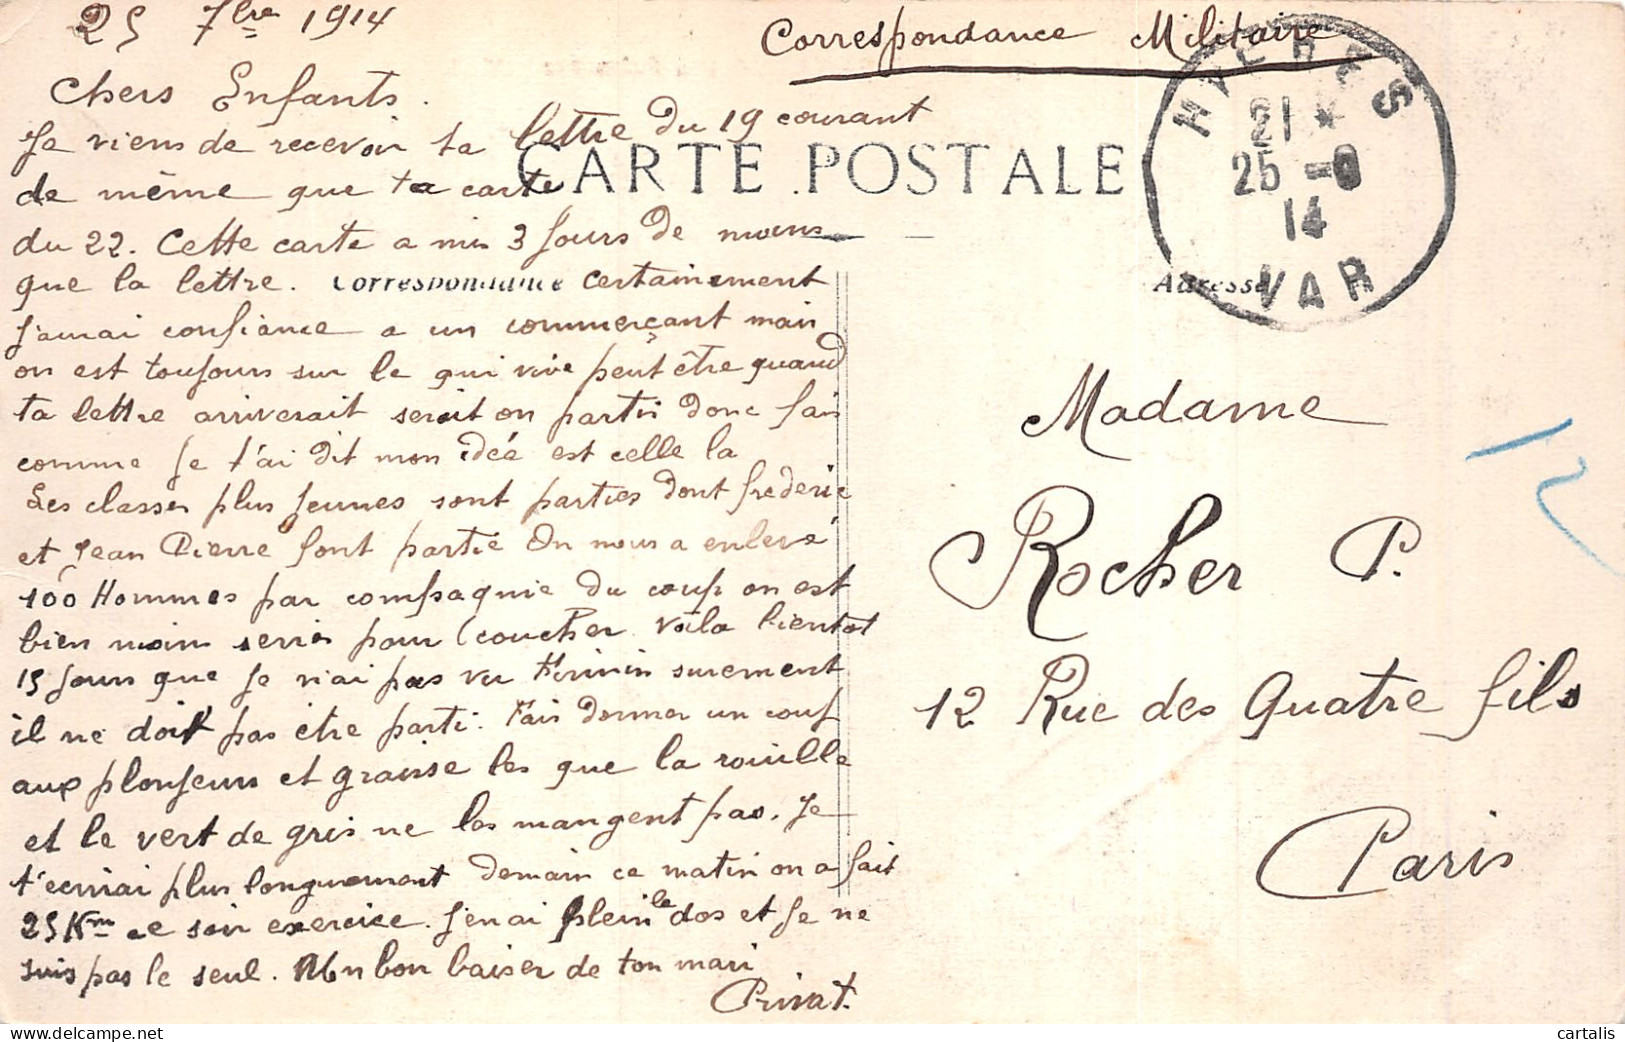 25 7bre 1914
Correspondance Militaire
HYERES
21 *
25 -9
14
VAR
Chers Enfants.
Je viens de recevoir ta lettre du 19 courant
CARTE POSTALE
de même que ta carte
du 22. Cette carte a mis 3 jours de moins
que la lettre. Correspondance certainement
Adresse
j'aurai confiance a un commerçant mais
on est toujours sur le qui vive peut être quand
ta lettre arriverait serait on partis donc fais
comme je t'ai dit mon idéé est celle la
Les classes plus jeunes sont parties dont frederic
et Jean Pierre sont partie On nous a enlevé
100 Hommes par compagnie du coup on est
bien moins serrés pour coucher. Voila bientot
15 jours que je n'ai pas vu Firmin surement
il ne doit pas être parti. Fais donner un coup
aux plongeurs et graisse les que la rouille
et le vert de gris ne les mangent pas. Je
t'ecrirai plus longuement demain ce matin on a fait
25 Km ce soir exercice. J'en ai plein le dos et je ne
suis pas le seul. Un bon baiser de ton mari
Privat.
Madame
Rocher P.
12 Rue des Quatre fils
Paris
12
cartalis